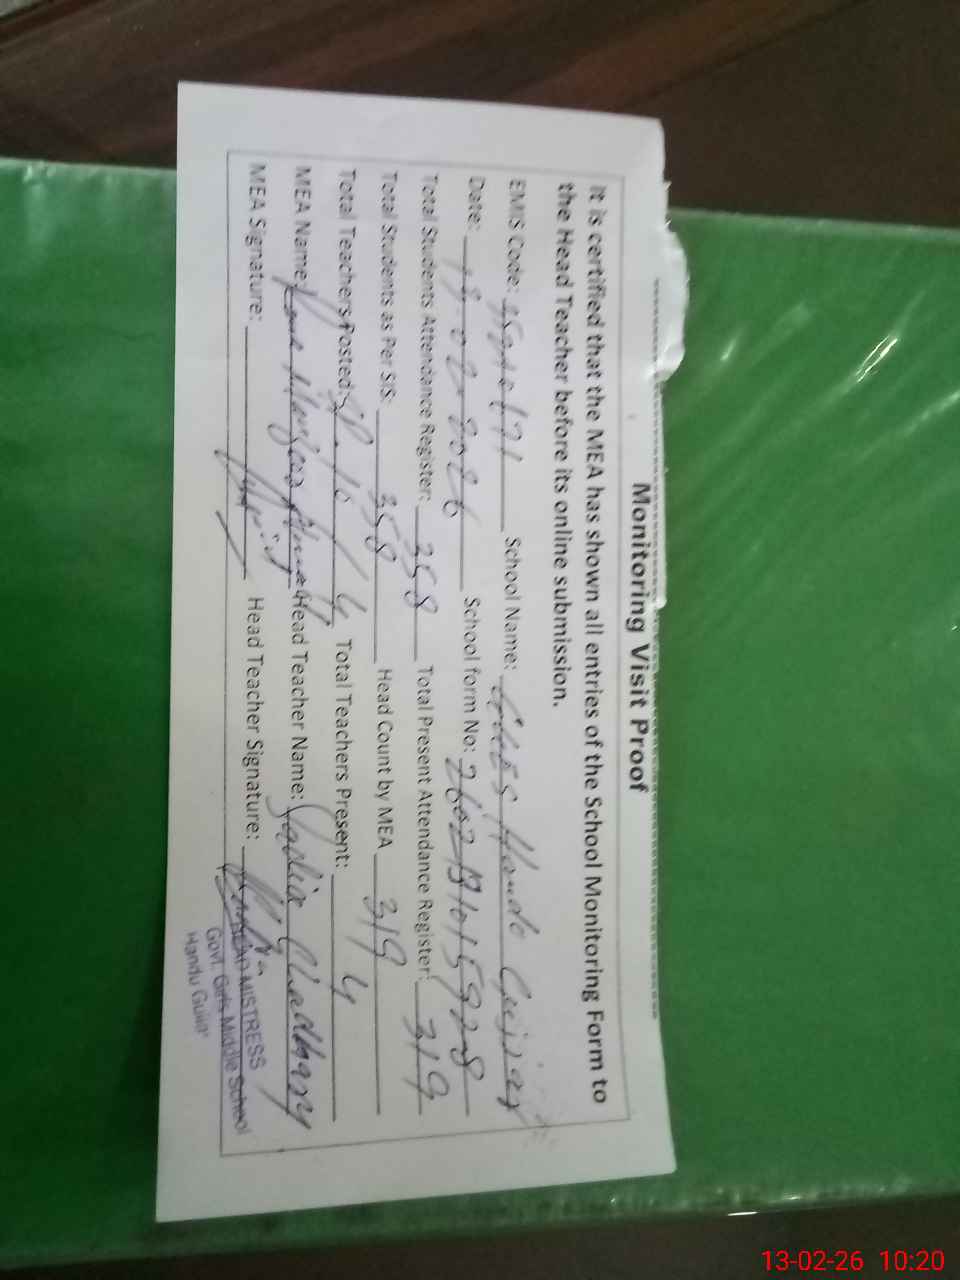 Monitoring Visit Proof
It is certified that the MEA has shown all entries of the School Monitoring Form to
the Head Teacher before its online submission.
EMIS Code: School Name: Hando
Date: 2026 School form No:
Total Students Attendance Register: 358 Total Present Attendance Register: 319
Total Students as Per SIS: 358 Head Count by MEA 319
Total Teachers Posted: 4 Total Teachers Present: 4
MEA Name: Head Teacher Name: Sadia
MEA Signature: Head Teacher Signature:
HEAD MISTRESS
Govt. Girls Middle School
Handu Gujjar
13-02-26 10:20